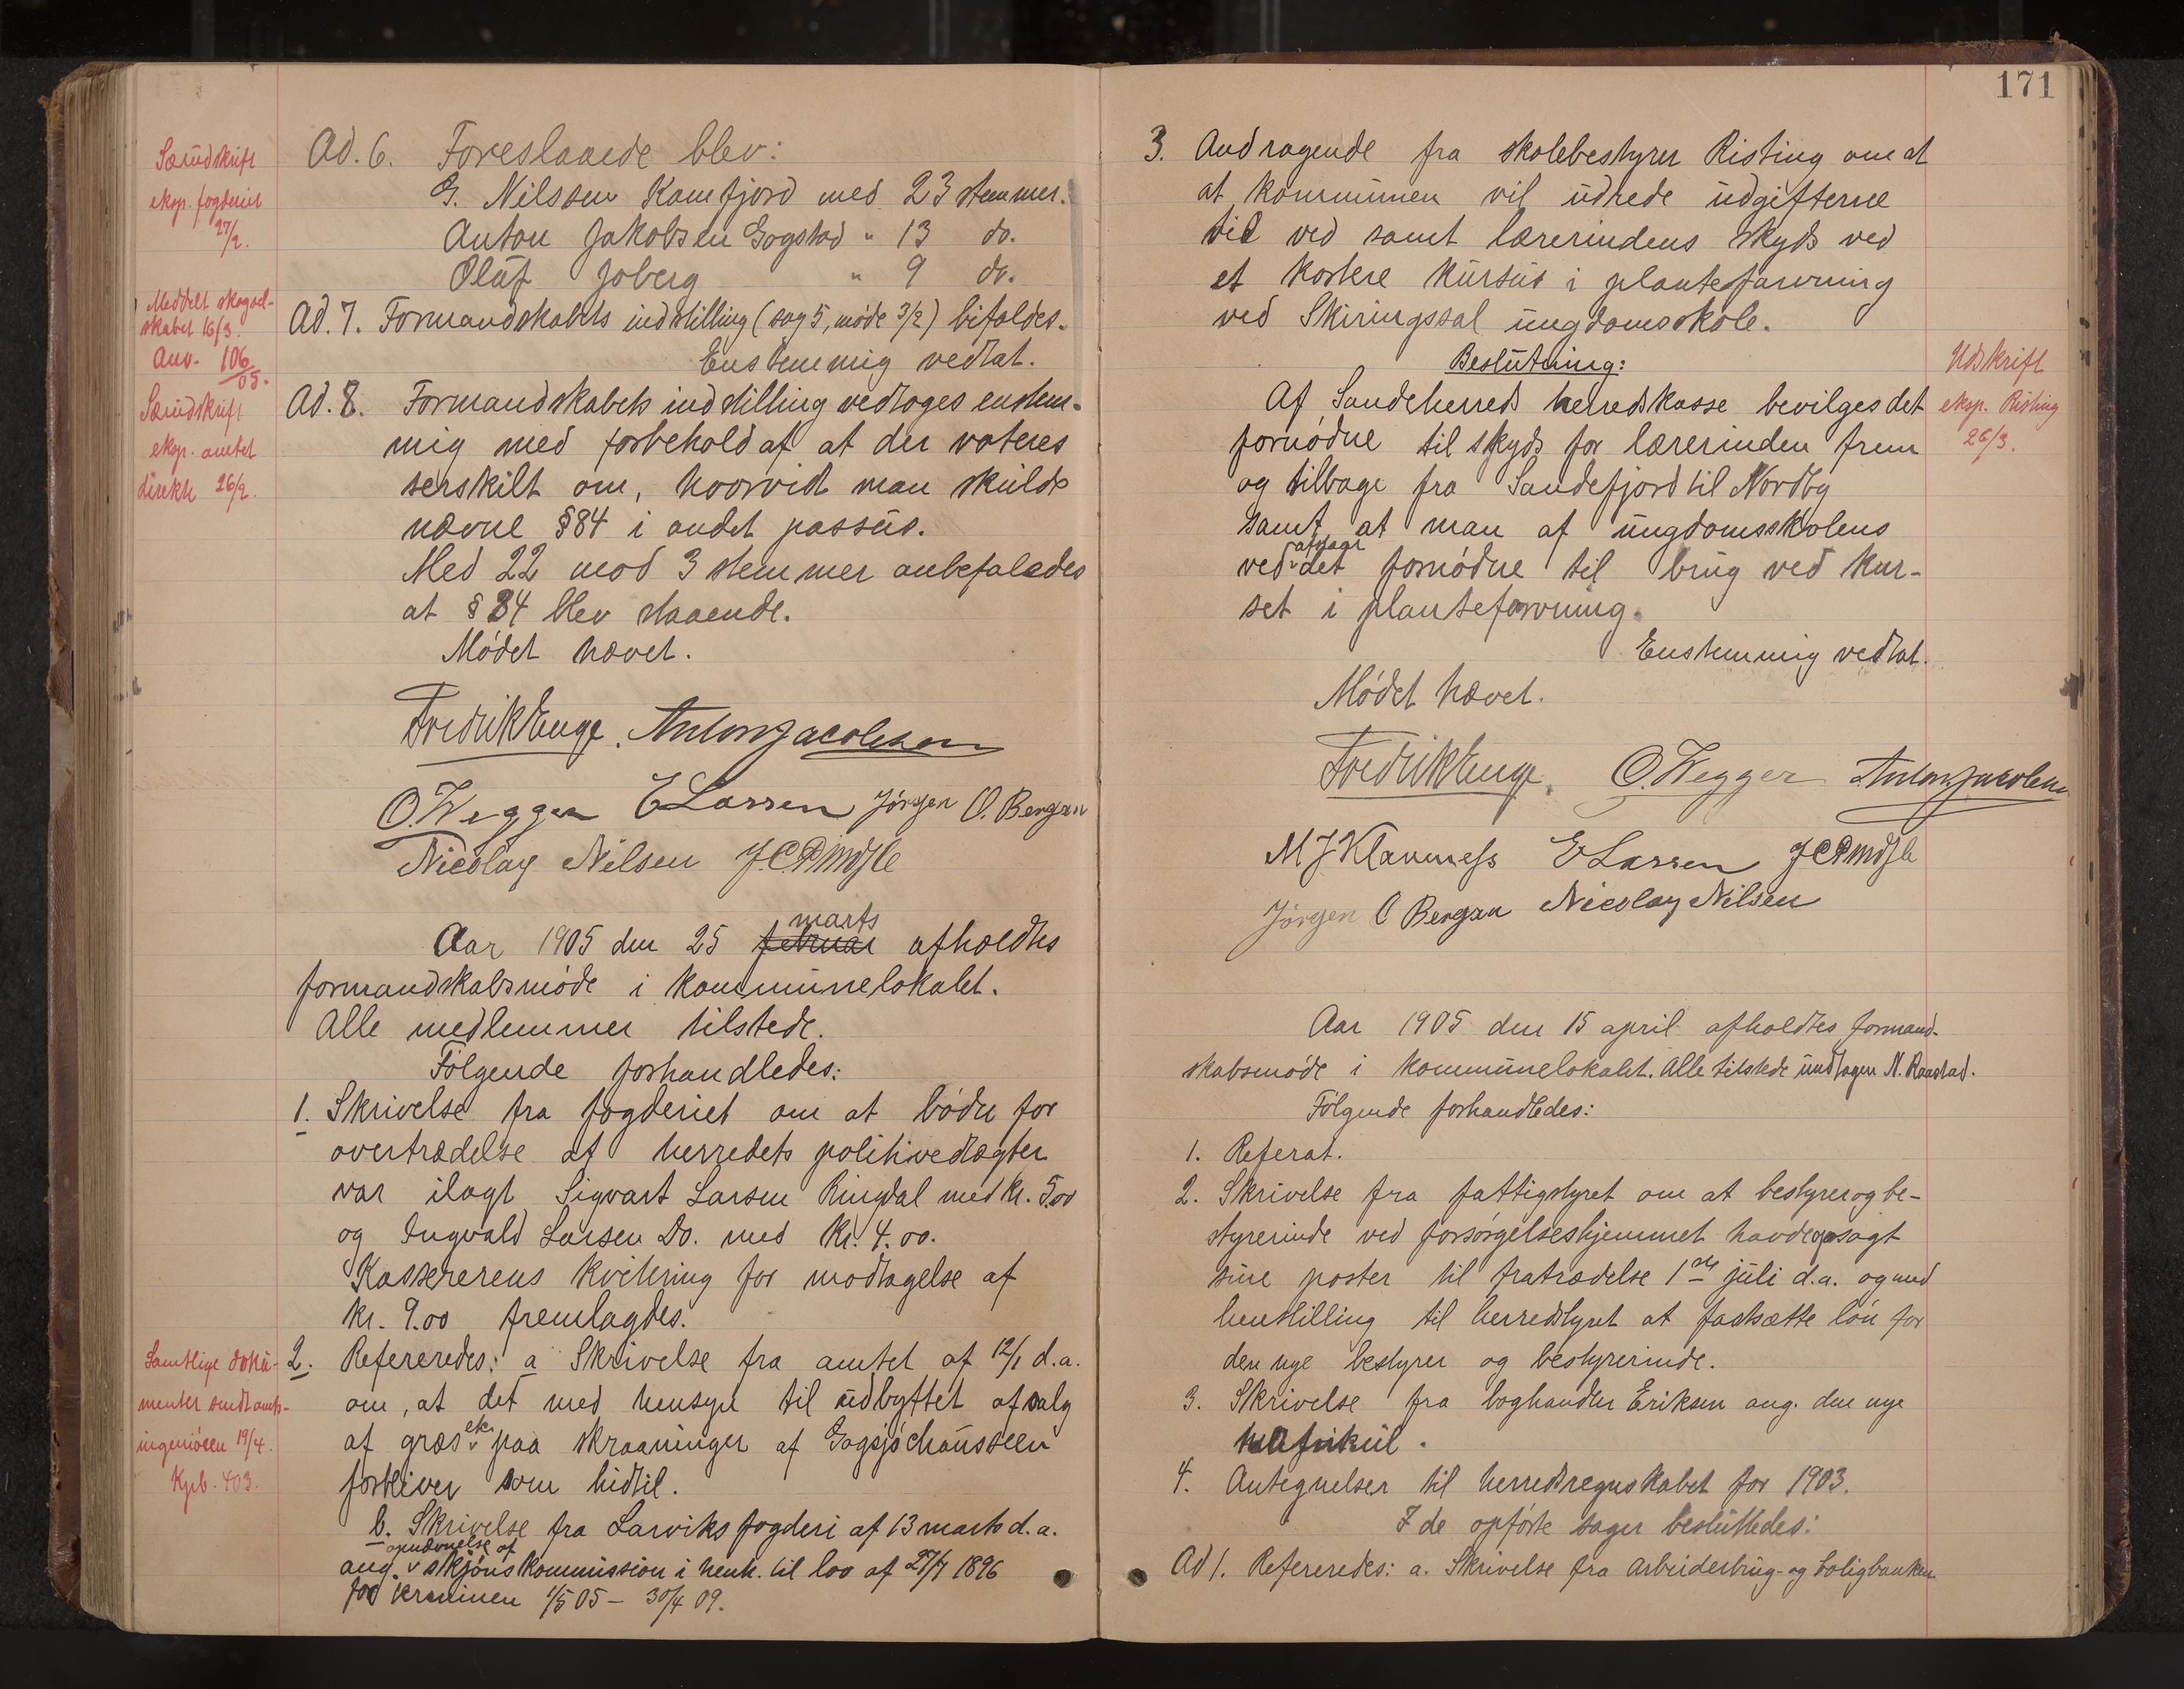 Særudskrift
eksp. fogderiet
27/2.
Meddelt skogsel-
skabet 16/3.
Anv. 106/05.
Særudskrift
eksp. amtet
direkte 26/2.
Ad. 6. Foreslaaede blev:
G. Nilssen Kamfjord med 23 stemmer.
Anton Jakobsen Gogstad " 13 do.
Oluf Joberg " 9 do.
Ad. 7. Formandskabets indstilling (sag 5, møde 3/2) bifaldes.
Enstemmig vedtat.
Ad. 8. Formandskabets indstilling vedtoges enstem-
mig med forbehold af at der voteres
serskilt om, hvorvidt man skulde
nævne § 84 i andet passus.
Med 22 mod 3 stemmer anbefaledes
at § 84 blev staaende.
Mødet hævet.
Fredrik Enge. Anton Jacobsen
O. Wegger E Larsen Jørgen O. Bergan
Nicolay Nilsen J. C. Pindsle
Aar 1905 den 25 februar marts afholdtes
formandskabsmøde i kommunelokalet.
Alle medlemmer tilstede.
Følgende forhandledes:
1. Skrivelse fra fogderiet om at bøder for
overtrædelse af herredets politivedtægter
var ilagt Sigvart Larsen Ringdal med kr. 5.00
og Ingvald Larsen Do. med kr. 4.00.
Kassererens kvittering for modtagelse af
kr. 9.00 fremlagdes.
Samtlige doku-
menter sendt amts-
ingeniøren 19/4.
Kpb. 403.
2. Refereredes: a Skrivelse fra amtet af 12/1 d.a.
om, at det med hensyn til udbyttet af salg
af græs etc paa skraaninger af Gogsjøchausseen
forbliver som hidtil.
b. Skrivelse fra Larviks fogderi af 13 marts d.a.
ang. opnævnelse af skjønskommission i henh. til lov af 27/7 1896
for terminen 1/5 05 – 30/4 09.
171
3. Andragende fra skolebestyrer Risting om at
at kommunen vil udrede udgifterne
til ved samt lærerindens skyds ved
et kortere kursus i plantefarvning
ved Skiringssal ungdomsskole.
Beslutning:
Af Sandeherreds herredskasse bevilges det
fornødne til skyds for lærerinden frem
og tilbage fra Sandefjord til Nordby
samt at man af ungdomsskolens
ved afdage det fornødne til brug ved kur-
set i plantefarvning.
Enstemmig vedtat.
Udskrift
eksp. Risting
26/3.
Mødet hævet.
Fredrik Enge. O. Wegger Anton Jacobsen
M J Klavness E Larsen J C Pindsle
Jørgen O Bergan Nicolay Nilsen
Aar 1905 den 15 april afholdtes formand-
skabsmøde i kommunelokalet. Alle tilstede undtagen N. Raastad.
Følgende forhandledes:
1. Referat.
2. Skrivelse fra fattigstyret om at bestyrer og be-
styrerinde ved forsørgelseshjemmet havde opsagt
sine poster til fratrædelse 1ste juli d.a. og med
henstilling til herredstyret at fastsætte løn for
den nye bestyrer og bestyrerinde.
3. Skrivelse fra boghandler Eriksen ang. den nye
matrikul.
4. Antegnelser til herredsregnskabet for 1903.
I de opførte sager besluttedes:
Ad 1. Refereredes: a. Skrivelse fra Arbeiderbrug- og boligbanken